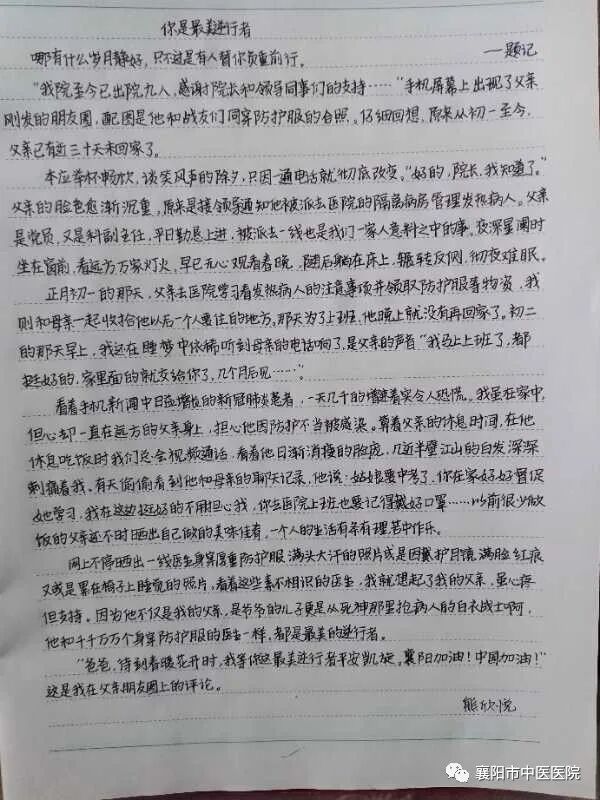 你是最美逆行者
哪有什么岁月静好，只不过是有人替你负重前行。
——题记
“我院至今已出院九人，感谢院长和领导同事们的支持……”手机屏幕上出现了父亲
刚发的朋友圈，配图是他和战友们同穿防护服的合照。仔细回想，原来从初一至今，
父亲已有近三十天未回家了。
本应举杯畅饮，谈笑风声的除夕，只因一通电话就彻底改变。“好的，院长，我知道了。”
父亲的脸色愈渐沉重，原来是接领导通知他被派去医院的隔离病房管理发热病人。父亲
是党员，又是科副主任，平日勤恳上进，被派去一线也是我们一家人意料之中的事。夜深星阑时
坐在窗前，看远方万家灯火，早已无心观看春晚，随后躺在床上，辗转反侧，彻夜难眠。
正月初一的那天，父亲去医院学习看发热病人的注意事项并领取防护服等物资，我
则和母亲一起收拾他以后一个人要住的地方。那天为了上班，他晚上就没有再回家了。初二
的那天早上，我还在睡梦中依稀听到母亲的电话响了，是父亲的声音“我马上上班了，都
挺好的，家里面的就交给你了，几个月后见……”。
看着手机新闻中日益增长的新冠肺炎患者，一天几千的增速着实令人恐慌。我虽在家中，
但心却一直在远方的父亲身上，担心他因防护不当被感染。算着父亲的休息时间，在他
休息吃饭时我们总会视频通话，看着他日渐消瘦的脸庞，几近半壁江山的白发深深
刺痛着我。有天偷偷看到他和母亲的聊天记录，他说：姑娘要中考了，你在家好好督促
她学习，我在这边挺好的不用担心我，你去医院上班也要记得戴好口罩……以前很少做
饭的父亲还不时晒出自己做的美味佳肴，一个人的生活有条有理，苦中作乐。
网上不停晒出一线医生身穿厚重防护服满头大汗的照片或是因戴护目镜满脸红痕
又或是累在椅子上睡觉的照片，看着这些素不相识的医生，我就想起了我的父亲，虽心疼
但支持。因为他不仅是我的父亲，是爷爷的儿子更是从死神那里抢病人的白衣战士啊，
他和千千万万个身穿防护服的医生一样，都是最美的逆行者。
“爸爸，待到春暖花开时，我等你这最美逆行者平安凯旋。襄阳加油！中国加油！”
这是我在父亲朋友圈上的评论。
熊欣悦
襄阳市中医医院